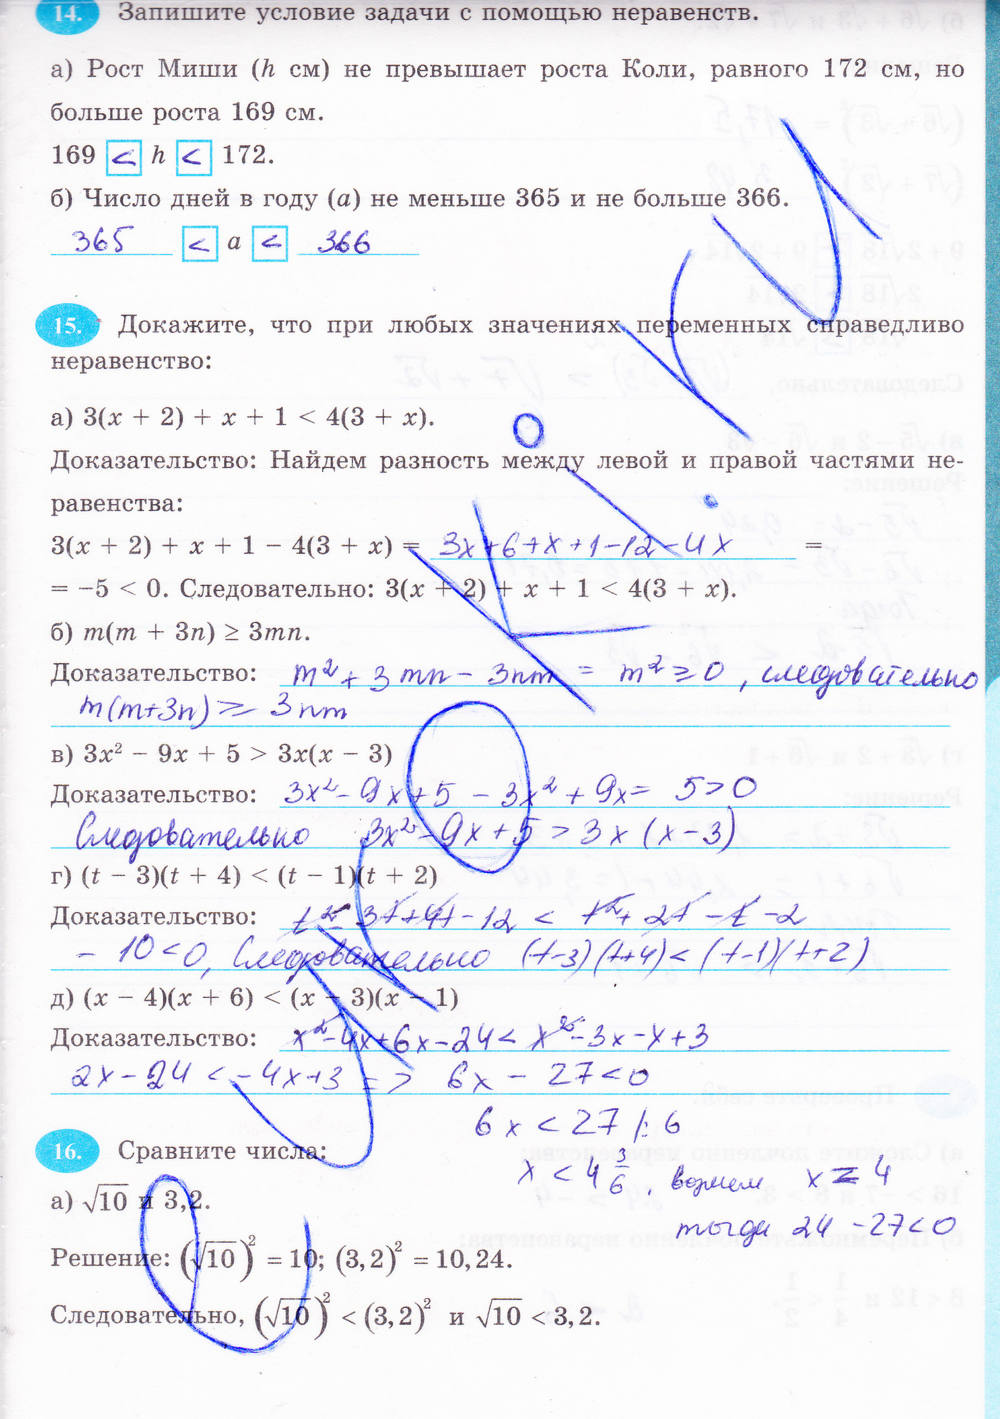 14. Запишите условие задачи с помощью неравенств.
а) Рост Миши (h см) не превышает роста Коли, равного 172 см, но
больше роста 169 см.
169 < h < 172.
б) Число дней в году (a) не меньше 365 и не больше 366.
365 < a < 366
15. Докажите, что при любых значениях переменных справедливо
неравенство:
а) 3(x + 2) + x + 1 < 4(3 + x).
Доказательство: Найдем разность между левой и правой частями не-
равенства:
3(x + 2) + x + 1 − 4(3 + x) = 3x+6+x+1−12−4x =
= −5 < 0. Следовательно: 3(x + 2) + x + 1 < 4(3 + x).
б) m(m + 3n) ≥ 3mn.
Доказательство: m²+3mn−3nm = m²≥0, следовательно
m(m+3n) ≥ 3nm
в) 3x² − 9x + 5 > 3x(x − 3)
Доказательство: 3x²−9x+5−3x²+9x= 5>0
Следовательно 3x²−9x+5>3x(x−3)
г) (t − 3)(t + 4) < (t − 1)(t + 2)
Доказательство: t²−3t+4t−12 < t²+2t−t−2
−10<0, Следовательно (t−3)(t+4)<(t−1)(t+2)
д) (x − 4)(x + 6) < (x − 3)(x − 1)
Доказательство: x²−4x+6x−24< x²−3x−x+3
2x−24<−4x+3 => 6x−27<0
6x<27 |:6
x<4 3/6, возьмем x=4
тогда 24−27<0
16. Сравните числа:
а) √10 и 3,2.
Решение: (√10)² = 10; (3,2)² = 10,24.
Следовательно, (√10)² < (3,2)² и √10 < 3,2.